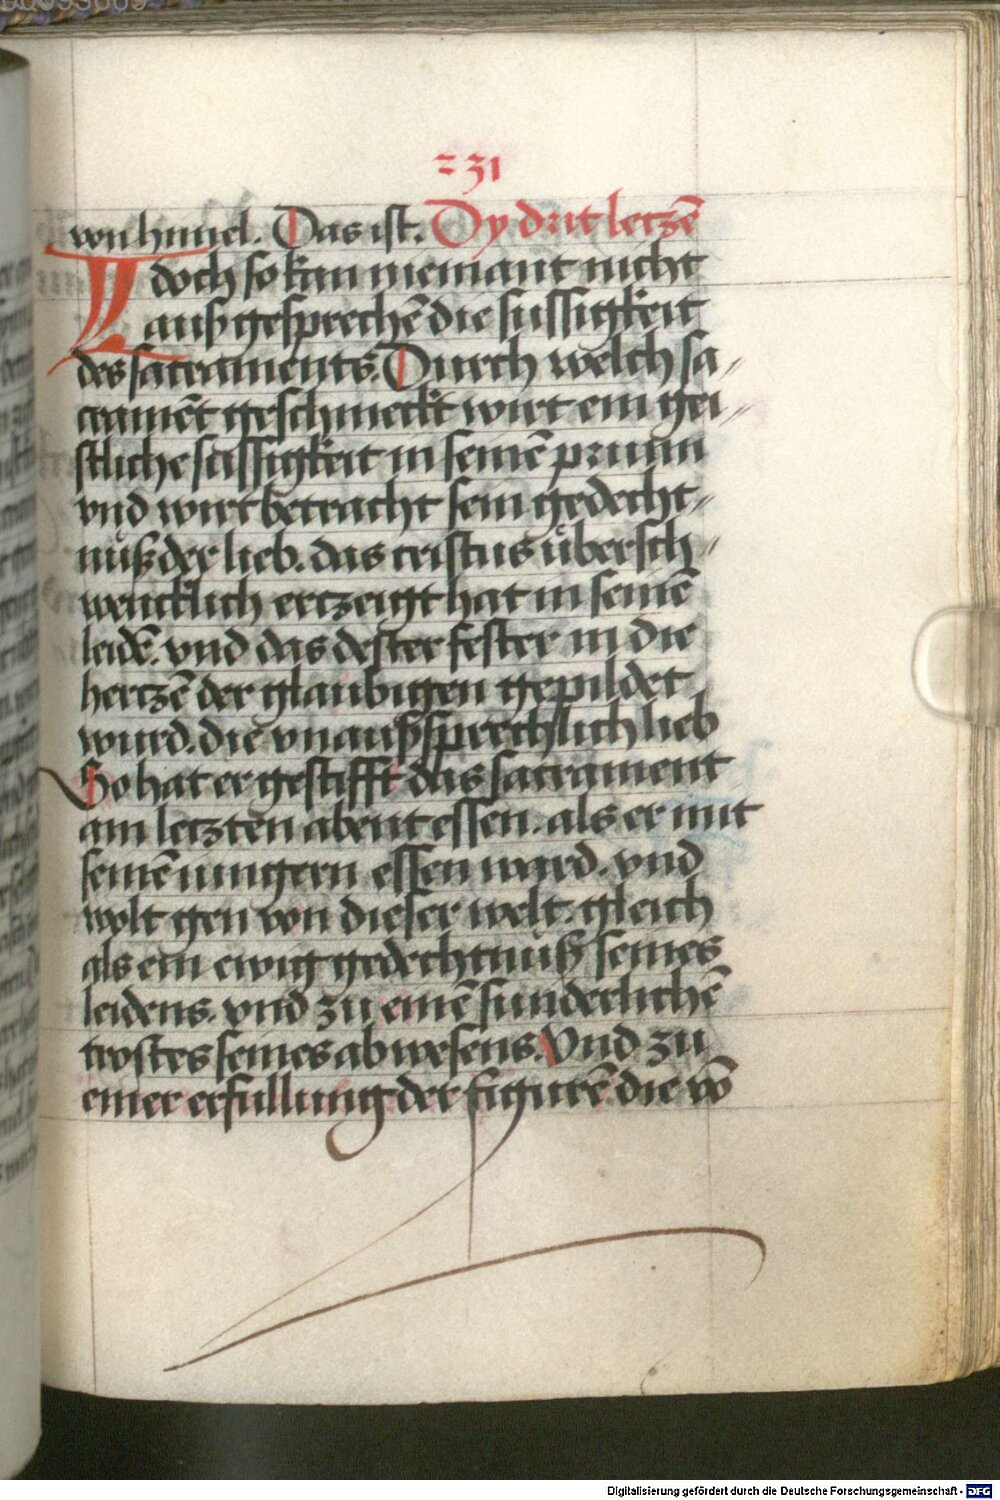 231
von himel. Das ist. Dy drit letzē
Idoch so kan niemant nicht
auß gesprechē die sussigkeit
des sacraments. Durch welch sa⸗
cramēt geschmeckt wirt ein gei⸗
stliche sussigkeit in seinē prunn
vnd wirt betracht sein gedecht⸗
nuß der lieb. das cristus übersch⸗
wencklich ertzeigt hat in seinē
leidē. vnd das dester fester in die
hertzē der glaubigen gepildet
wurd. die vnaußsprechlich lieb
So hat er gestifft das sacrament
am letzten abent essen. als er mit
seinē iungern essen ward. vnd
wolt gen von dieser welt. gleich
als ein ewig gedechtnuß seines
leidens. vnd zu einē sunderlichē
trostes seines abwesens. Vnd zu
einer erfullung der figurē die vō
Digitalisierung gefördert durch die Deutsche Forschungsgemeinschaft - DFG